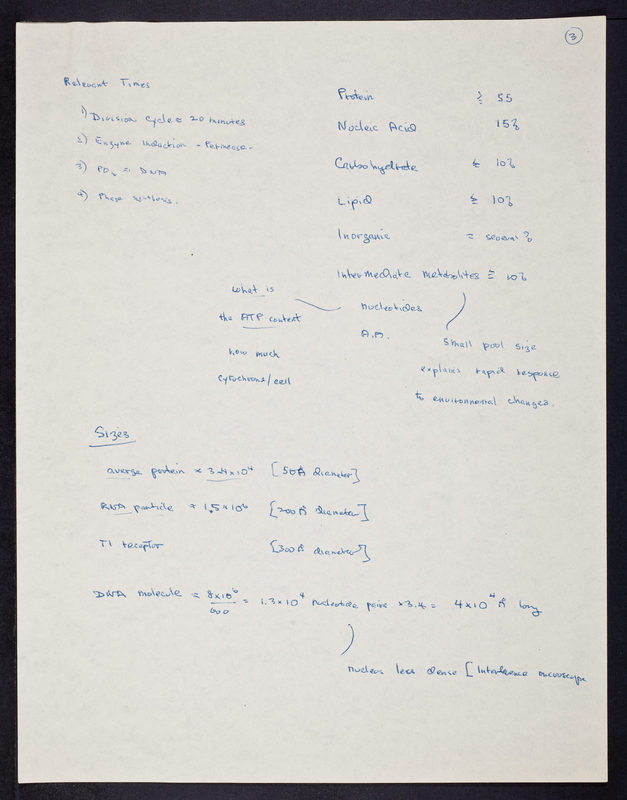 3
Relevant Times
1) Division Cycle = 20 minutes
2) Enzyme induction - Permease -
3) PO4 = DNA
4) Phage synthesis.
Protein ≅ 55
Nucleic Acid 15%
Carbohydrate ≅ 10%
Lipid ≅ 10%
Inorganic = several %
Intermediate metabolites ≅ 10%
nucleotides
A.A.
What is
the ATP content
how much
cytochrome/cell
small pool size
explains rapid response
to environmental changes.
Sizes
average protein × 3.4×10⁴ [50Å diameter]
RNA particle = 1.5×10⁶ [200Å diameter]
T1 receptor [300Å diameter]
DNA molecule = 8×10⁶/600 = 1.3×10⁴ nucleotide pairs ×3.4 = 4×10⁴ Å long
nucleus less dense [Interference microscope